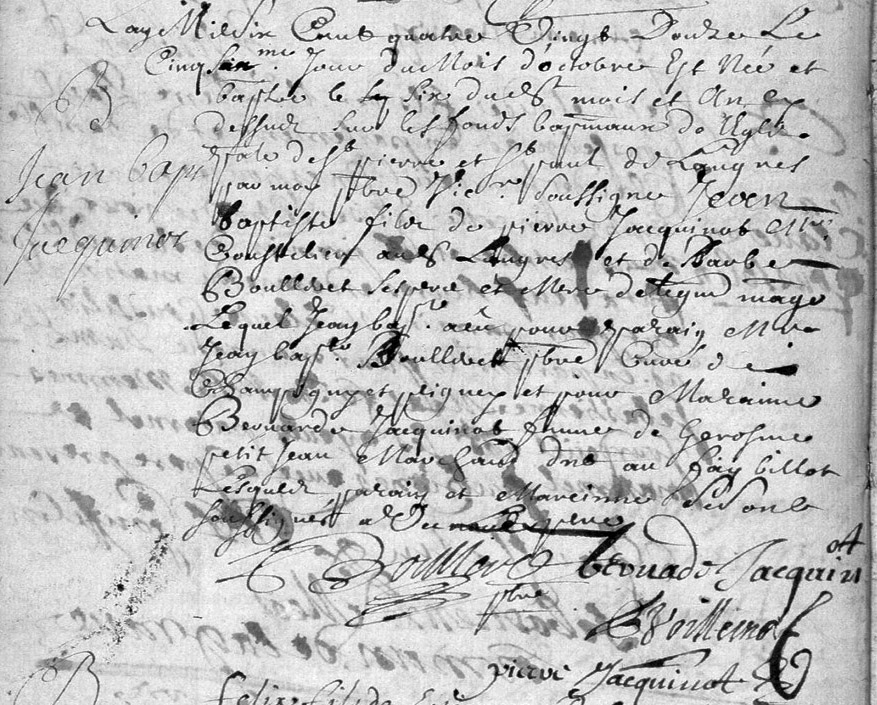 Lan Mil Six Cent quatre Vingt Douze Le
Cinq jour du Mois d'octobre Est Née et
baptisé le six dudt mois et An
dessud sur les fonds baptismaux de l'Eglise
de St pierre et St paul de Langres
Jean bapt
par moy pbre vic soussigné Jean
Baptiste filz de pierre Jacquinot Mre
Jacquinot
Coustelier audt Langres et de Barbe
Boulleret ses pere et Mere de legm mage
Lequel Jean bapte a eu pour parain Mre
Jean bapte Boulleret pbre Curé de
Champigny et et pour Maraine
Bernarde Jacquinot femme de Gerosme
petit Jean Marchand au fay billot
Lesquelz parain et Mareinne se sont
soussignés avec le pere
Boulleret bernade Jacquinot
pbre
Voillemot
pierre Jacquinot
B
felix filz de